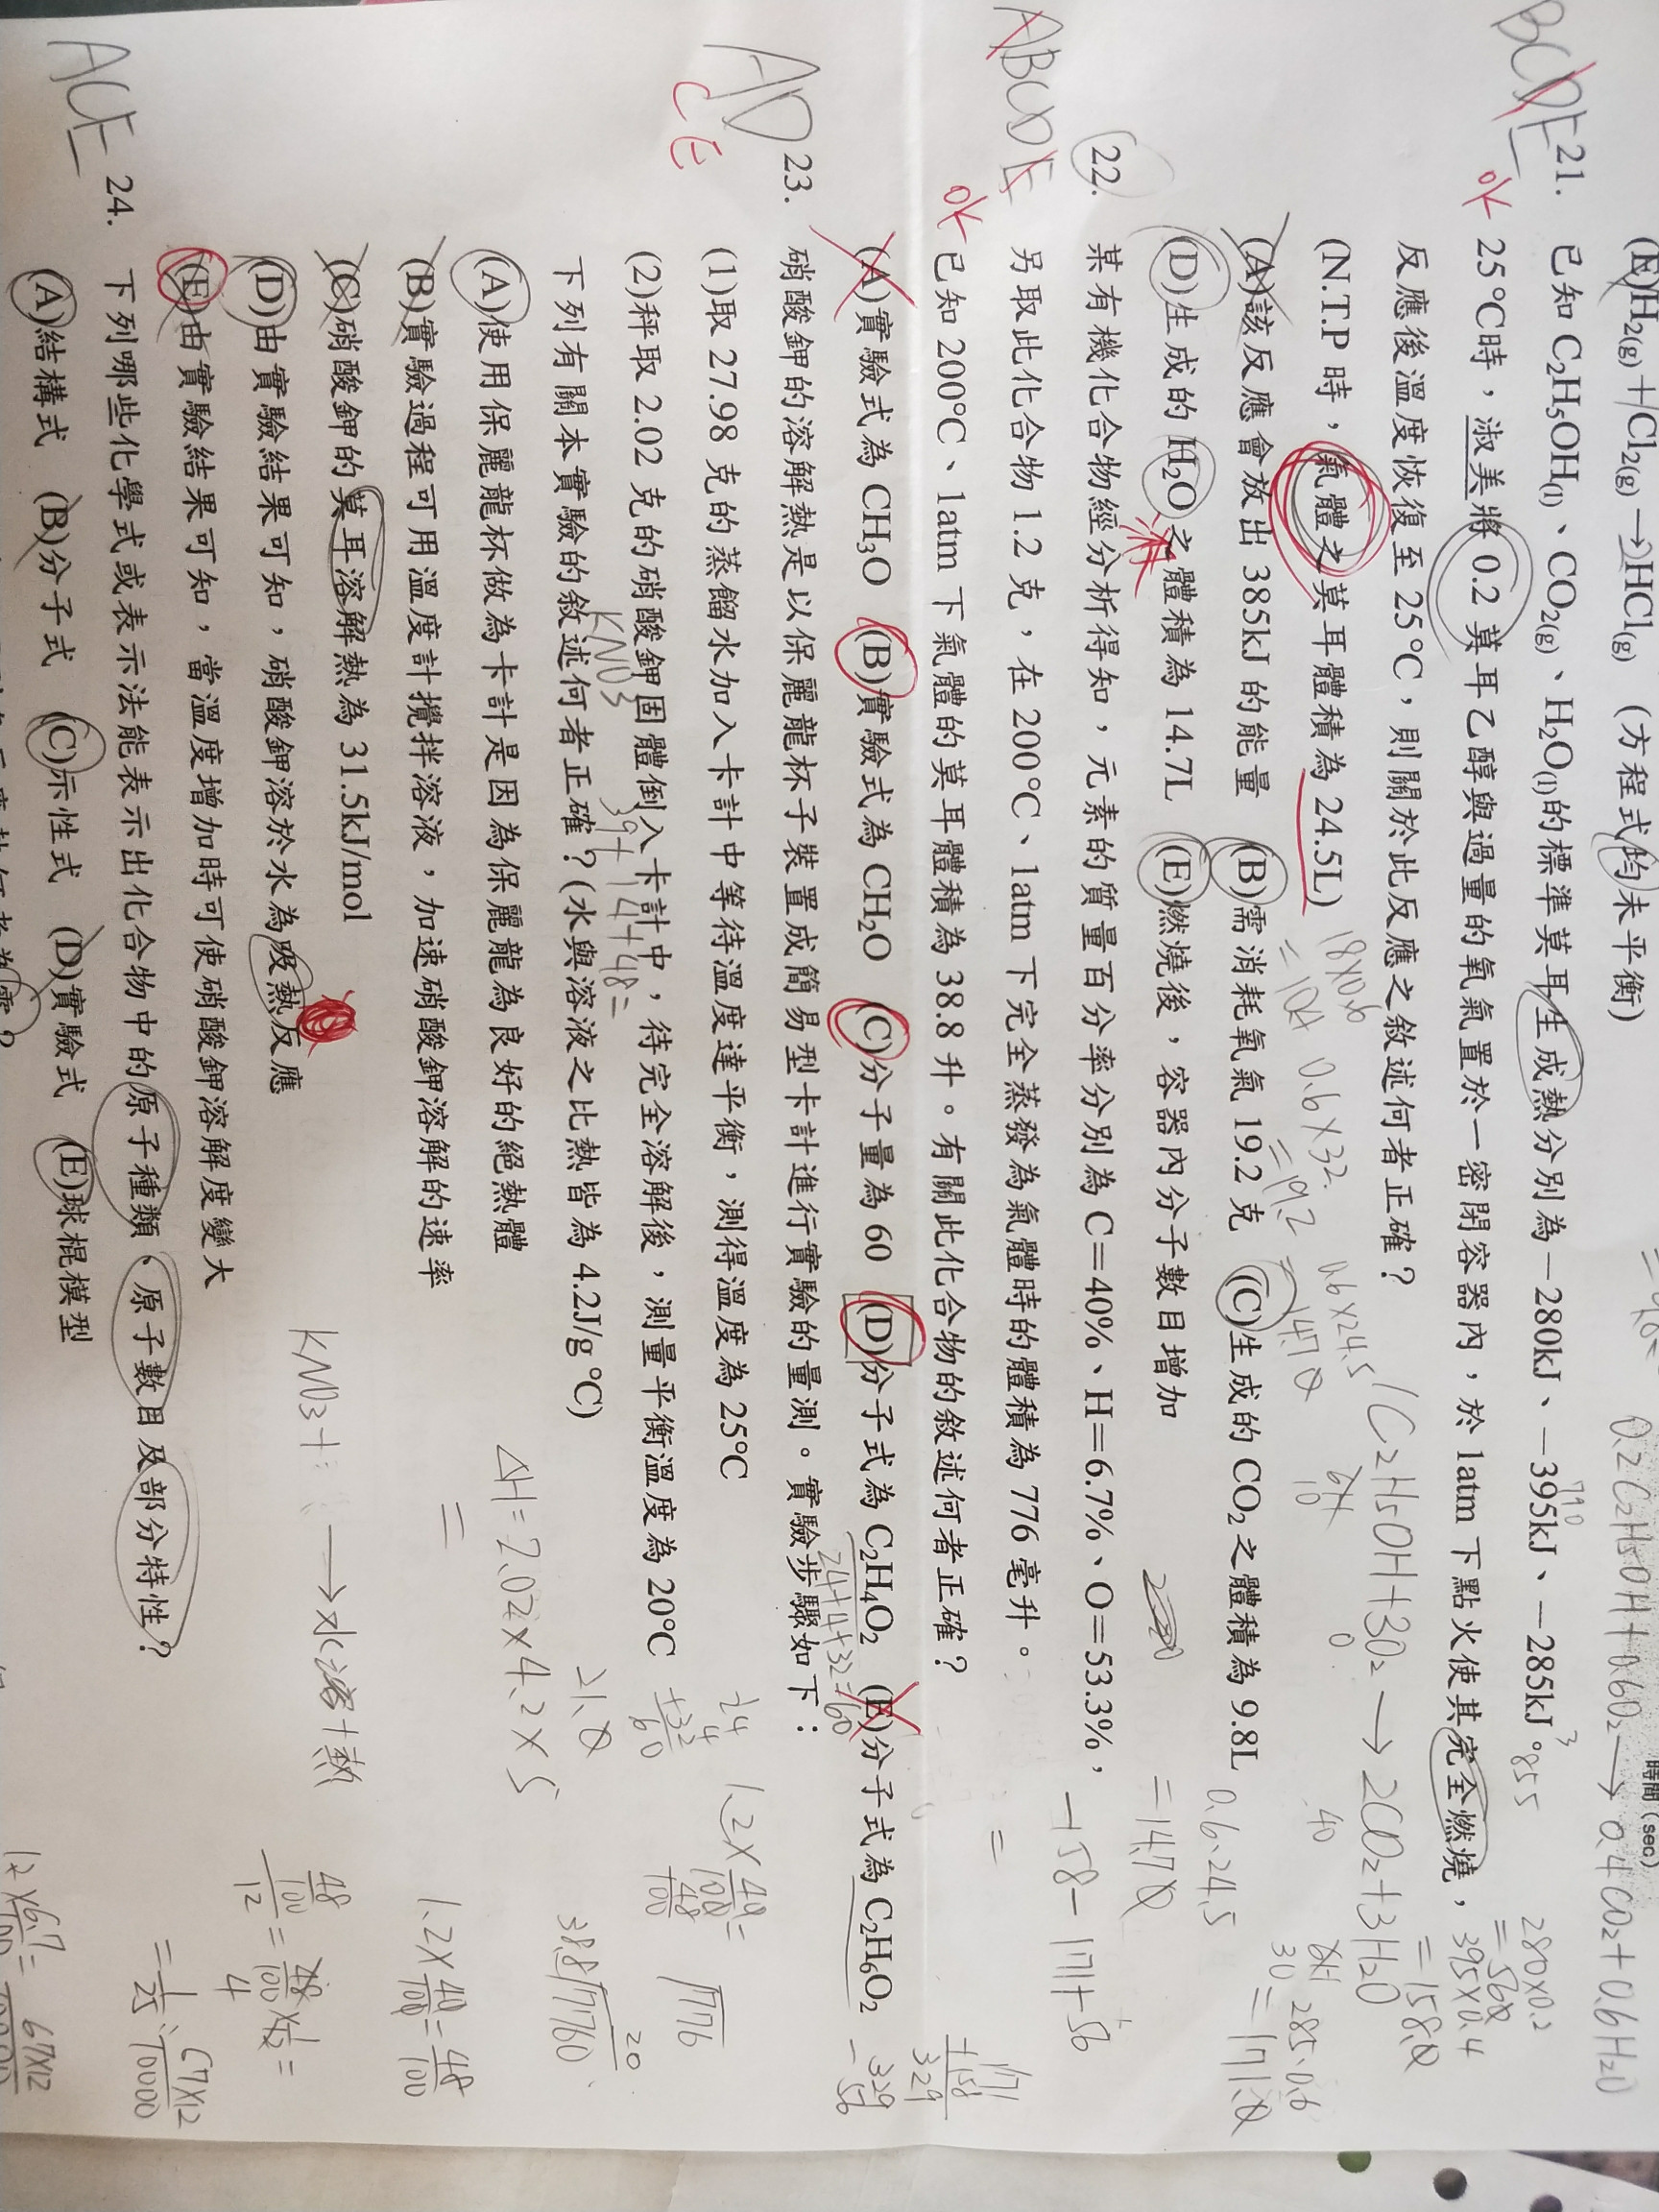 (E)H₂(g)+Cl₂(g)→2HCl(g) (方程式均未平衡)
時間(sec)
0.2C₂H₅OH+0.6O₂→0.4CO₂+0.6H₂O
BCDE
21. 已知 C₂H₅OH(l)、CO₂(g)、H₂O(l)的標準莫耳生成熱分別為-280kJ、-395kJ、-285kJ。
790
3
855
ok
25℃時,淑美將 0.2 莫耳乙醇與過量的氧氣置於一密閉容器內,於 1atm 下點火使其完全燃燒,
280×0.2
=56
395×0.4
=158
反應後溫度恢復至 25℃,則關於此反應之敘述何者正確?
C₂H₅OH+3O₂→2CO₂+3H₂O
(N.T.P 時,氣體之莫耳體積為 24.5L)
18×0.6
0.6×32
=19.2
0.6×24.5
14.7
285.0.6
=171
(A)該反應會放出 385kJ 的能量 (B)需消耗氧氣 19.2 克 (C)生成的 CO₂之體積為 9.8L
0.6.24.5
=14.7
(D)生成的 H₂O 之體積為 14.7L (E)燃燒後,容器內分子數目增加
-158-171+56
=
ABCDE
22. 某有機化合物經分析得知,元素的質量百分率分別為 C=40%、H=6.7%、O=53.3%,
另取此化合物 1.2 克,在 200℃、1atm 下完全蒸發為氣體時的體積為 776 毫升。
ok
已知 200℃、1atm 下氣體的莫耳體積為 38.8 升。有關此化合物的敘述何者正確?
171
+158
329
(A)實驗式為 CH₃O (B)實驗式為 CH₂O (C)分子量為 60 (D)分子式為 C₂H₄O₂ (E)分子式為 C₂H₆O₂
24+4+32=60
329
-56
AD
CE
23. 硝酸鉀的溶解熱是以保麗龍杯子裝置成簡易型卡計進行實驗的量測。實驗步驟如下:
(1)取 27.98 克的蒸餾水加入卡計中等待溫度達平衡,測得溫度為 25℃
24
4
+32
60
(2)秤取 2.02 克的硝酸鉀固體倒入卡計中,待完全溶解後,測量平衡溫度為 20℃
KNO₃
39+14+48=
下列有關本實驗的敘述何者正確?(水與溶液之比熱皆為 4.2J/g℃)
(A)使用保麗龍杯做為卡計是因為保麗龍為良好的絕熱體
ΔH=2.02×4.2×5
=
(B)實驗過程可用溫度計攪拌溶液,加速硝酸鉀溶解的速率
(C)硝酸鉀的莫耳溶解熱為 31.5kJ/mol
KNO₃+
→水溶+熱
(D)由實驗結果可知,硝酸鉀溶於水為吸熱反應
(E)由實驗結果可知,當溫度增加時可使硝酸鉀溶解度變大
ACE
24. 下列哪些化學式或表示法能表示出化合物中的原子種類、原子數目及部分特性?
(A)結構式 (B)分子式 (C)示性式 (D)實驗式 (E)球棍模型